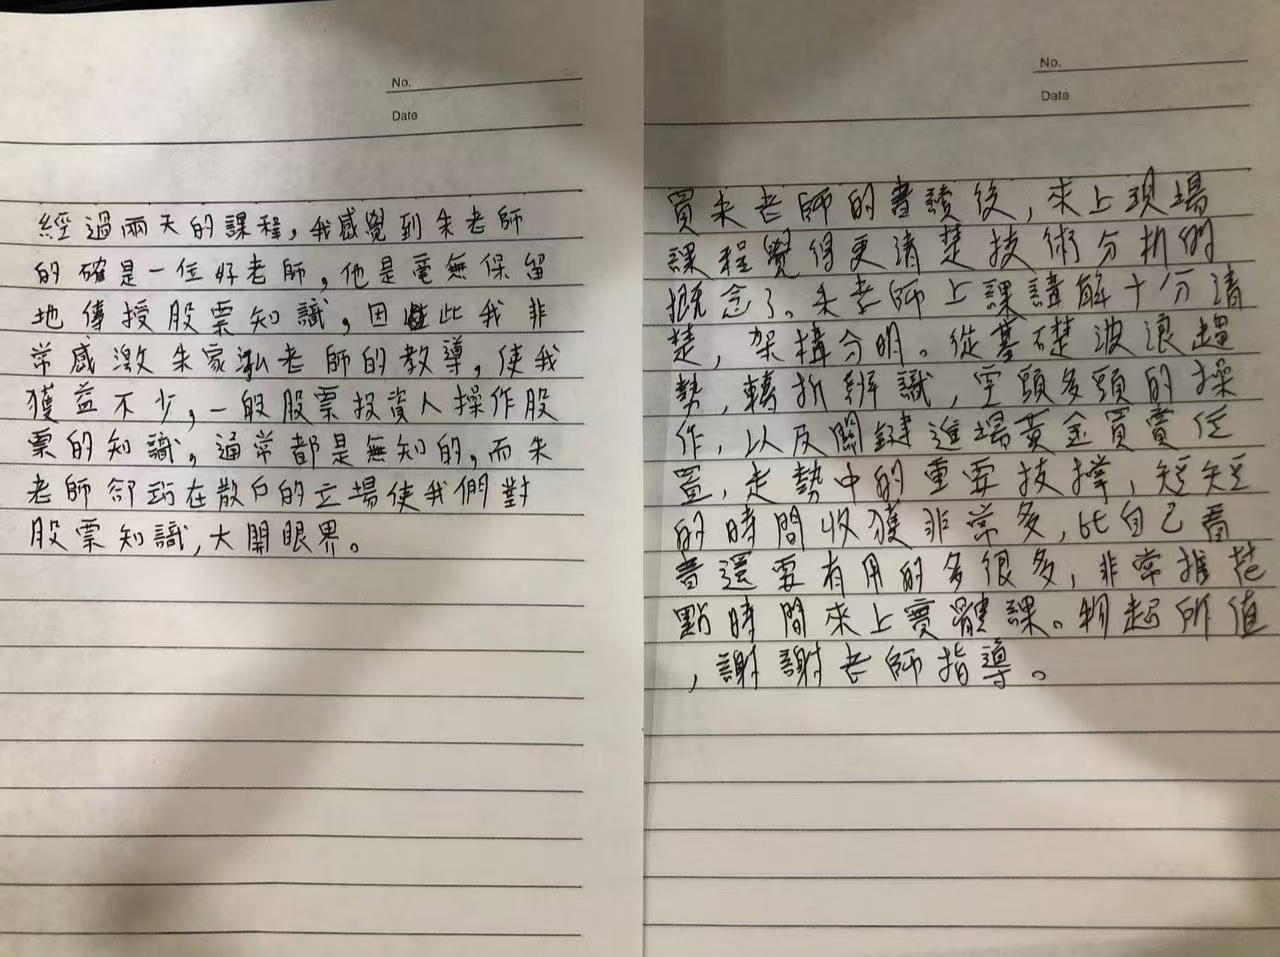 No.
Date
經過兩天的課程，我感覺到朱老師
的確是一位好老師，他是毫無保留
地傳授股票知識，因此我非
常感激朱家泓老師的教導，使我
獲益不少，一般股票投資人操作股
票的知識，通常都是無知的，而朱
老師卻站在散戶的立場使我們對
股票知識，大開眼界。
No.
Date
買朱老師的書讀後，來上現場
課程覺得更清楚技術分析的
概念了。朱老師上課講解十分清
楚，架構分明。從基礎波浪趨
勢，轉折辨識，空頭多頭的操
作，以及關鍵進場黃金買賣位
置，走勢中的重要技撐，短短
的時間收獲非常多，比自己看
書還要有用的多很多，非常推花
點時間來上實體課。物超所值
，謝謝老師指導。